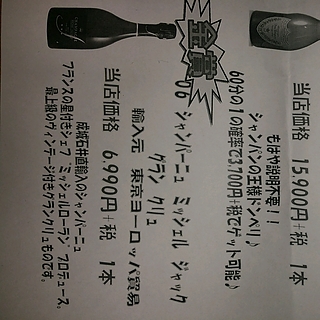 当店価格 15,900円+税 1本
もはや説明不要！！
シャンパンの王様ドンペリ♪
60分の1の確率で3,700円+税でゲット可能♪
金賞
'06 シャンパーニュ ミッシェル ジャック
グラン クリュ
輸入元 東京ヨーロッパ貿易
当店価格 6,990円+税 1本
成城石井直輸入のシャンパーニュ
フランスの星付きシェフ"ミッシェルローラン"プロデュース。
最上級のヴィンテージ付きグランクリュものです。